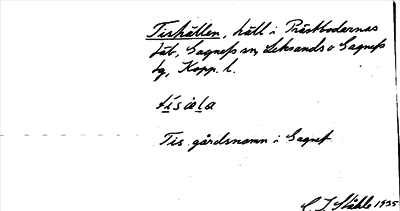 Tishällen, häll i Prästbodarnas
fäb, Gagnefs sn, Leksands o Gagnefs
tg, Kopp. l.
Tis gårdsnamn i Gagnef
C. I. Ståhle 1935